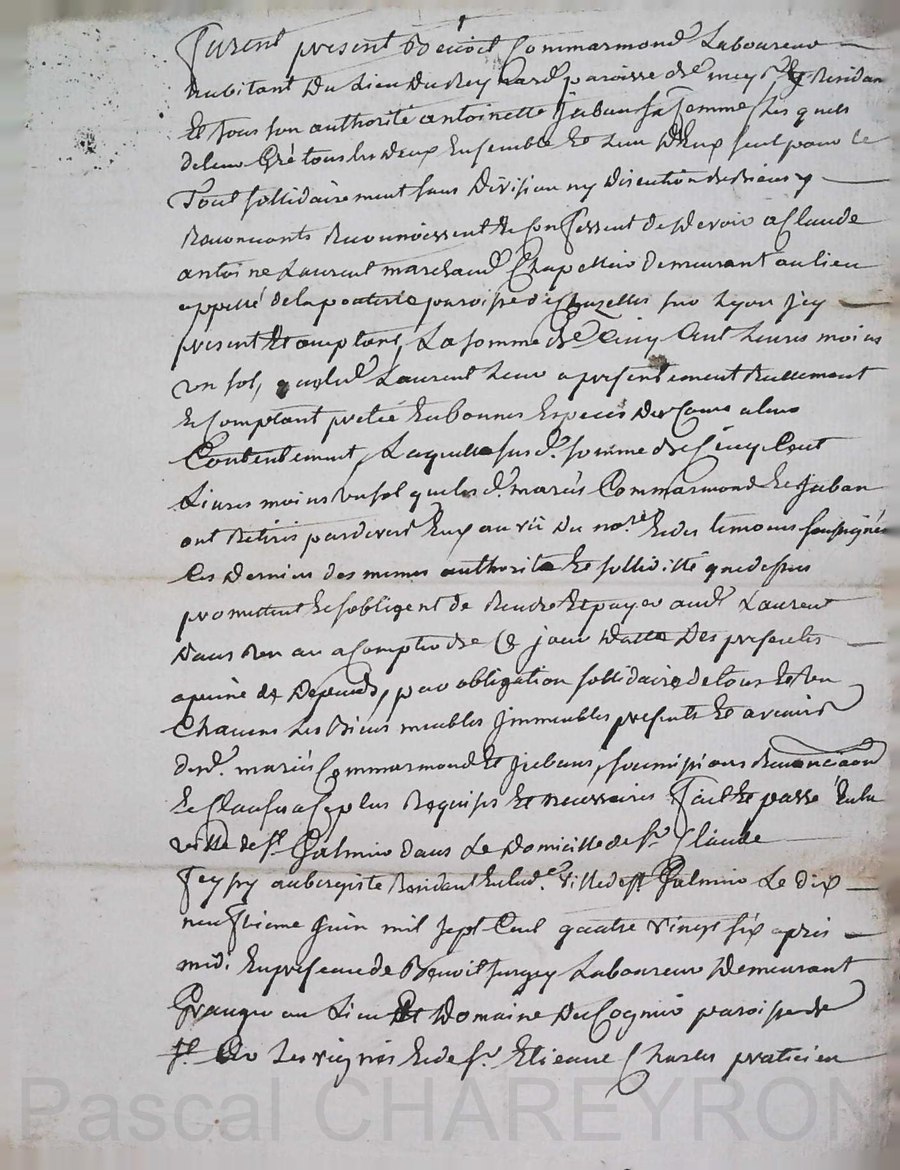 furent present Benoit Commarmond Laboureur
habitant du Lieu du Reynard paroisse de meys y Residan
Et sous son authorité antoinette juban sa femme Lesquels
deleur Gré tous les deux Ensemble Et lun deux seul pour le
Tout sollidairement sans Division ny Discution de Biens y
Renoncants Reconnoissent Et Confessent de Devoir a Claude
antoine Laurent marchand Chapellier demeurant au lieu
appellé de la poterie paroisse de Chazelles sur Lyon jcy
present Et acceptant, La somme de Cinq Cent Livres moins
un sol, que led Laurent Leur a presentement Reellement
Et Comptant preté En bonnes Especes De Cours a leur
Contentement, Laquelle susd. somme de Cinq Cent
Livres moins un sol que les d. mariés Commarmond Et Juban
ont Retirés pardevers Eux au vû Du no.re Et des temoins soussignés
Ces Derniers des memes authorité Et sollidité que dessus
promettent Et sobligent de Rendre Et payer aud. Laurent
Dans un an a Compter de Ce jour Datte Des presentes
a peine de Depends, par obligation sollidaire de tous Et un
Chacuns Les Biens meubles Jmmeubles presents Et avenir
desd. mariés Commarmond Et juban, soumissions Renonciaons
Et Clauses a Ce plus Requises Et necessaires Fait Et passé En la
ville de st. Galmier dans Le Domicille de sr. Claude
aubergiste Residant En lad.e ville de st Galmier Le dix
neufvieme juin mil sept Cent quatre vingt six apres
midi En presence de Benoit Laboureur Demeurant
Granger au Lieu Et Domaine Du Cognier paroisse de
st. Les vignes Et de sr. Etienne Charles praticien
Pascal CHAREYRON